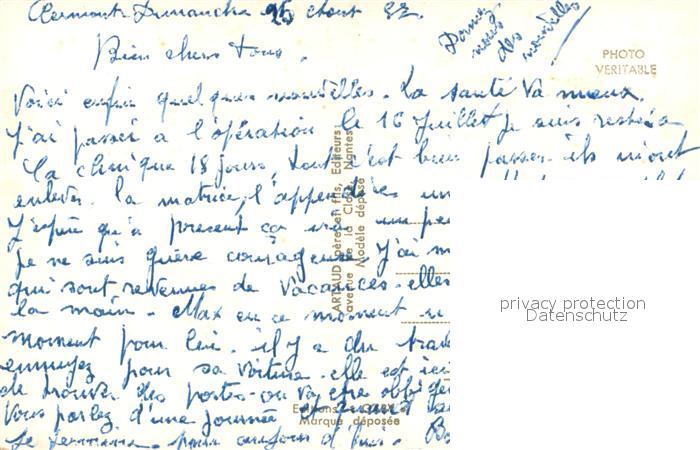 Clermont Dimanche 25 Aout
Donnez nous des nouvelles
PHOTO
VERITABLE
Bien chers tous.
Voici enfin quelques nouvelles. La santé va mieux.
J'ai passée a l'opération le 16 Juillet je suis restée a
la clinique 18 jours, tout c'est bien passer ils m'ont
enlever la matrice, l'appendice
J'espère qu'a present ça un peu
Je ne suis guère courageuse. J'ai
qui sont revenues de vacances. elles
la main. Max en ce moment
moment pour lui. il y a du
ennuyez pour sa voiture. elle est ici
de trouver des portes. on va être obligé
Vous parlez d'une journée et quand
Je termine pour aujourd'hui.
ARTAUD père et fils, Editeurs
avenue de la Close, Nantes
Modèle déposé
Editions GABY
Marque déposée
privacy protection
Datenschutz